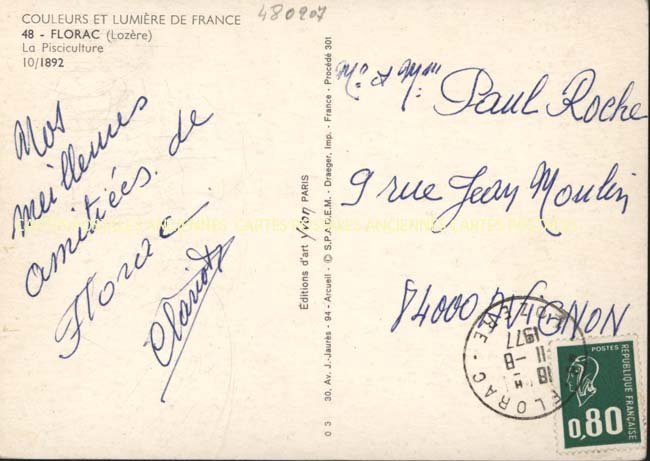 COULEURS ET LUMIÈRE DE FRANCE
48 - FLORAC (Lozère)
La Pisciculture
10/1892
480907
Nos
meilleures
amitiés de
Florac
Mr et Mme
Paul Roche
9 rue Jean Moulin
84000 AVIGNON
Editions d'art Yvon PARIS
03 30, Av. J.-Jaurès - 94 - Arcueil - © S.P.A.D.E.M. - Draeger, Imp. - France - Procédé 301
CARTES POSTALES ANCIENNES CARTES POSTALES ANCIENNES CARTES POSTALES
FLORAC - LOZERE
18 H
11 - 8
1977
POSTES
REPUBLIQUE FRANÇAISE
0,80